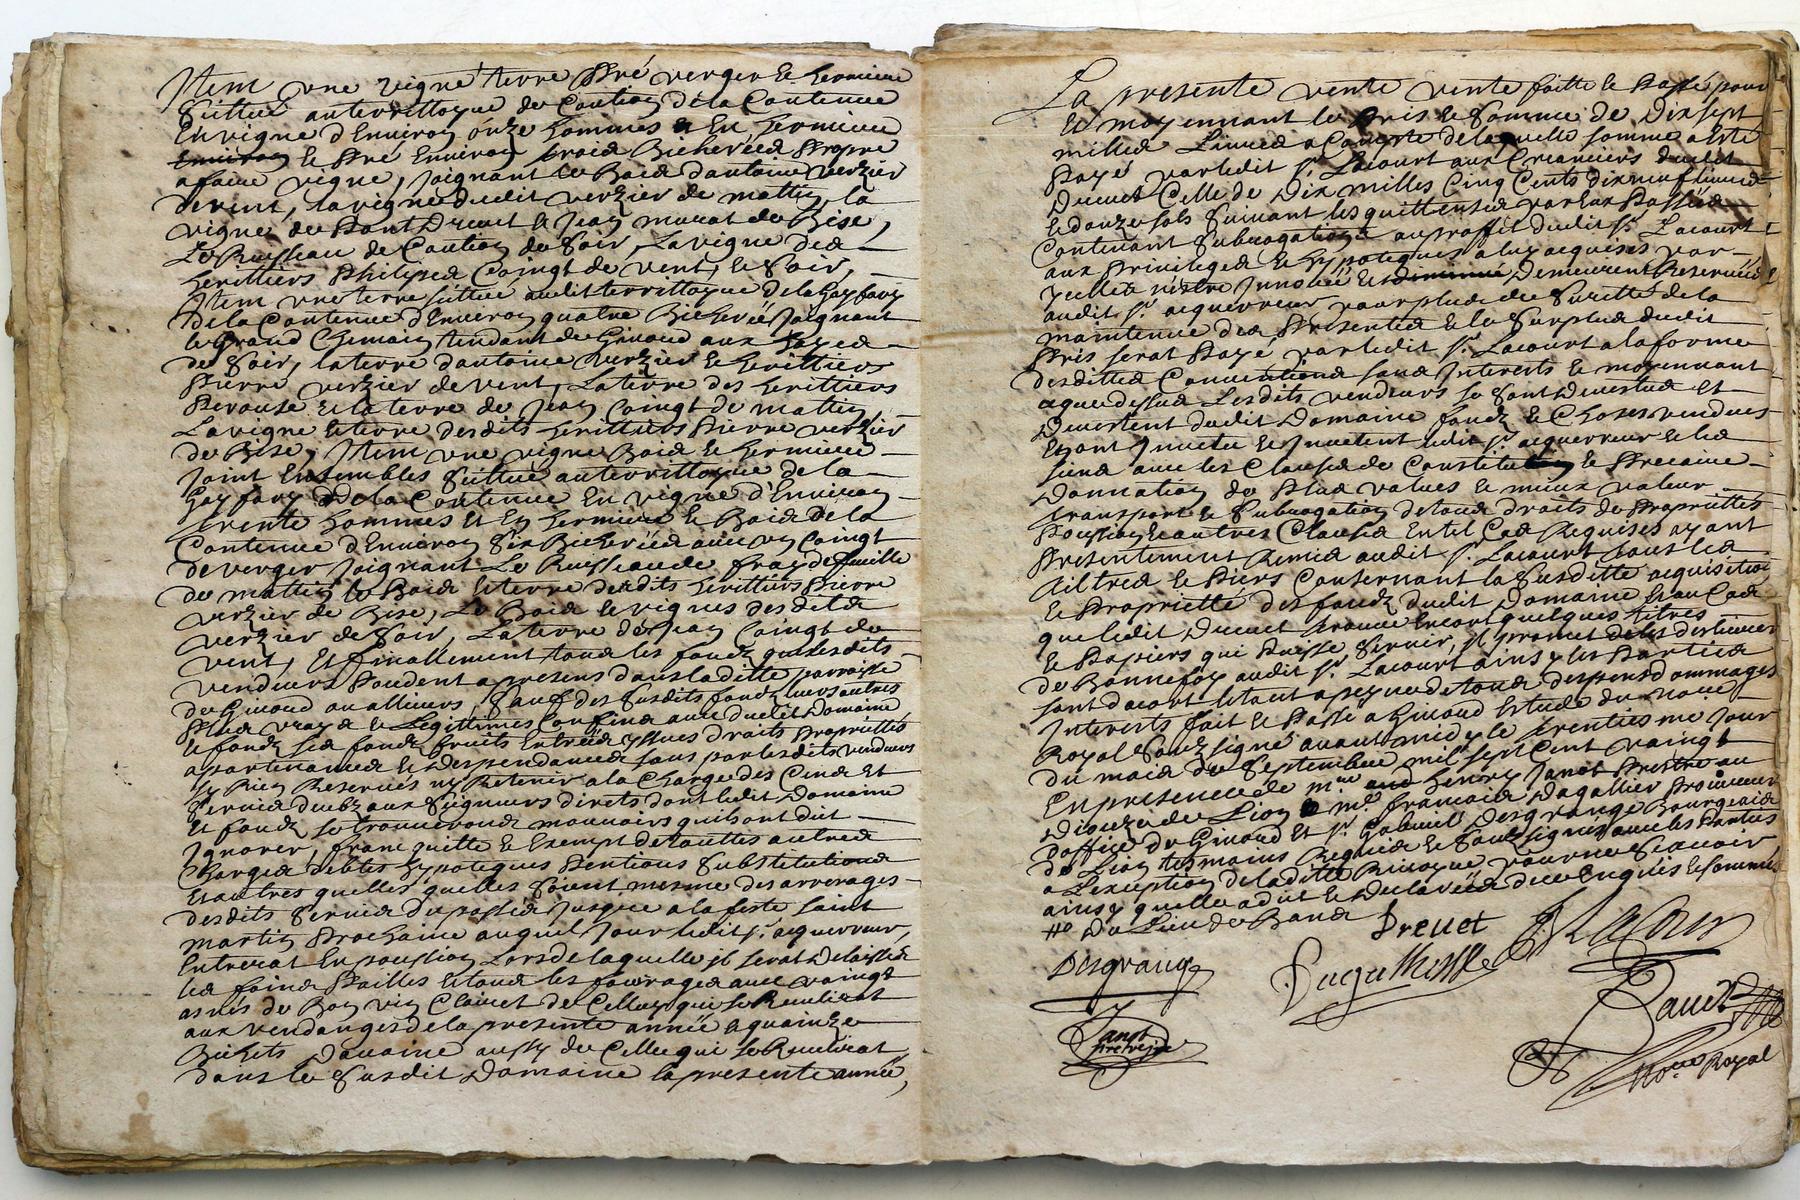 Item une vigne terre pré verger et hermicu
Scittué au territtoyre de Coution dela Contenue
En vigne d'Environ onze hommes et En hermicu
et Pré Environ trois Bicherées Propre
a faire vigne, Joignant le Bois d'antoine verzier
de vent, la vigne dudit verzier de mattin, la
vigne de Pont Dreuet et Jean monat de Bise,
Le Ruisseau de Coution de Soir, La vigne des
herittiers Philipes Coingt de vent, et Soir,
Item une terre scittué audit territtoyre de la Gayfary
de la Contenue d'Environ quatre Bicherées Joignant
le grand Chemain tendant de Ginoud aux hayes
de Soir, laterre d'antoine verzier et herittiers
Pierre verzier de vent, La terre des herittiers
Perouse et la terre de Jean Coingt de mattin,
La vigne et terre desdits herittiers Pierre verzier
de Bise, Item une vigne Bois et hermicu
Joint Ensembles scittué au territtoyre de la
Gayfary de la Contenue En vigne d'Environ
trente hommes et En hermicu et Bois de la
Contenue d'Environ Six Bicherées avec un Coingt
de verger Joignant Le Ruisseau de fraydefuille
de mattin le Bois et terre desdits herittiers Pierre
verzier de Bise, Le Bois et vignes desdits
verzier de Soir, La terre de Jean Coingt de
vent, Et finallement tous les fondz que lesdits
vendeurs Poudent apresens dans laditte parroisse
de Ginoud ou allieurs, Sauf des Susdits fondz leurs autres
Plus vrays et Légittimes Confins avec dudit Domaine
et fondz ses fondz fruits Entrées yssues droits Proprietés
apartenances et despendances sans par lesdits vendeurs
sy Rien Reservés ny Retenir a la Charge des Cens Et
Servis deubz aux Seigneurs directs dont ledit Domaine
Et fondz se trouverons mouvoirs quils ont dit
Ignorer, franc quitte et Exempt de touttes autres
Charges debtes hypoteques Pentions Substitutions
Et autres quelles quelles Soient mesme des arrerages
desdits Servis du passés Jusque a la feste Saint
martin Prochaine auquel Jour ledit sr. acquerreur,
Entrerat En possition Lors de laquelle jl serat delaissés
les foins Pailles et tous les fourrages avec vaingt
asnés de Bon vin Clairet de Celluy qui se Recullirat
aux vendanges de la presente année et quainze
Bichets d'avoine aussy de Celle qui se Recullirat
dans le Susdit Domaine la presente année,
La presente vente vente faitte et Passé pour
Et moyennant le Pris et Somme de Dixsept
milles Livres a Compte de laquelle somme a Esté
Payé par ledit sr. Lacourt aux Creanciers dudit
Dreuet Celle de Dix milles Cinq Cents dixneuf livres
et douze sols Suivant les quittenses par Eux Passées
Contenant Subrogation au proffit dudit sr. Lacourt
aux Privileges et hypoteques a luy acquises par
Demeurent Reservées
audit sr. acquerreur, pour plus de Suretté de la
maintenue des Presentes et le Surplus dudit
Pris serat Payé par ledit sr. Lacourt a la forme
desdittes Conventions sans Interets et moyennant
ce que dessus Lesdits vendeurs se sont Devestus et
Devertent dudit Domaine fondz et Choses vendues
Et ont Jnvetu et Jnvetent ledit sr. acquerreur et les
siens avec les Clauses de Constitution et Precaire
Donnation de Plus values et mieux valeur
transport et Subrogation de tous droits de Proprietés
Possition et autres Clauses En tel Cas Requises ayant
Presentement Remis audit sr. Lacourt tous les
tiltres et Piers Consernant la Susditte acquisition
et Proprietté des fondz dudit Domaine Et au Cas
que ledit Dreuet trouve Encort quelques titres
et Papiers qui Puisse servir, jl promet de les delivrer
de Bonnefoy audit sr. Lacourt ainsy les Parties
sont dacort le tout a peyne de tous despens dommages
Interets fait et Passé a Ginoud Estude du no.re
Royal Soubz signé avant midy le trentiesme Jour
du mois de Septembre mil sept Cent vaingt
En presence de mre. henry Janot Prestre au
Diocese de Lion et me. francois Dagallier Procureur
d'office de Ginoud Et sr. Gabriel Desgrange Bourgeois
de Lion tesmoins Requis et Soubsignés avec les Parties
a L'exeption de laditte Rincoyre pour ne scavoir
ainsy quelle a dit et Declarée de ce Enquies et sommés
Du Lieu de Bans
Dreuet
Lacour
Desgrange
Dagallier
Janot
pretre
Baudt
No.re Royal